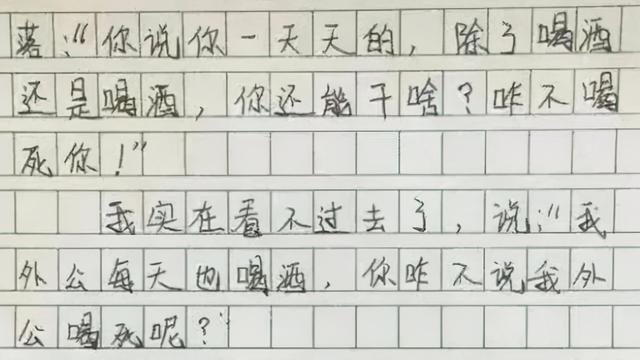 落："你说你一天天的，除了喝酒
还是喝酒，你还能干啥？咋不喝
死你！"
我实在看不过去了，说："我
外公每天也喝酒，你咋不说我外
公喝死呢？"